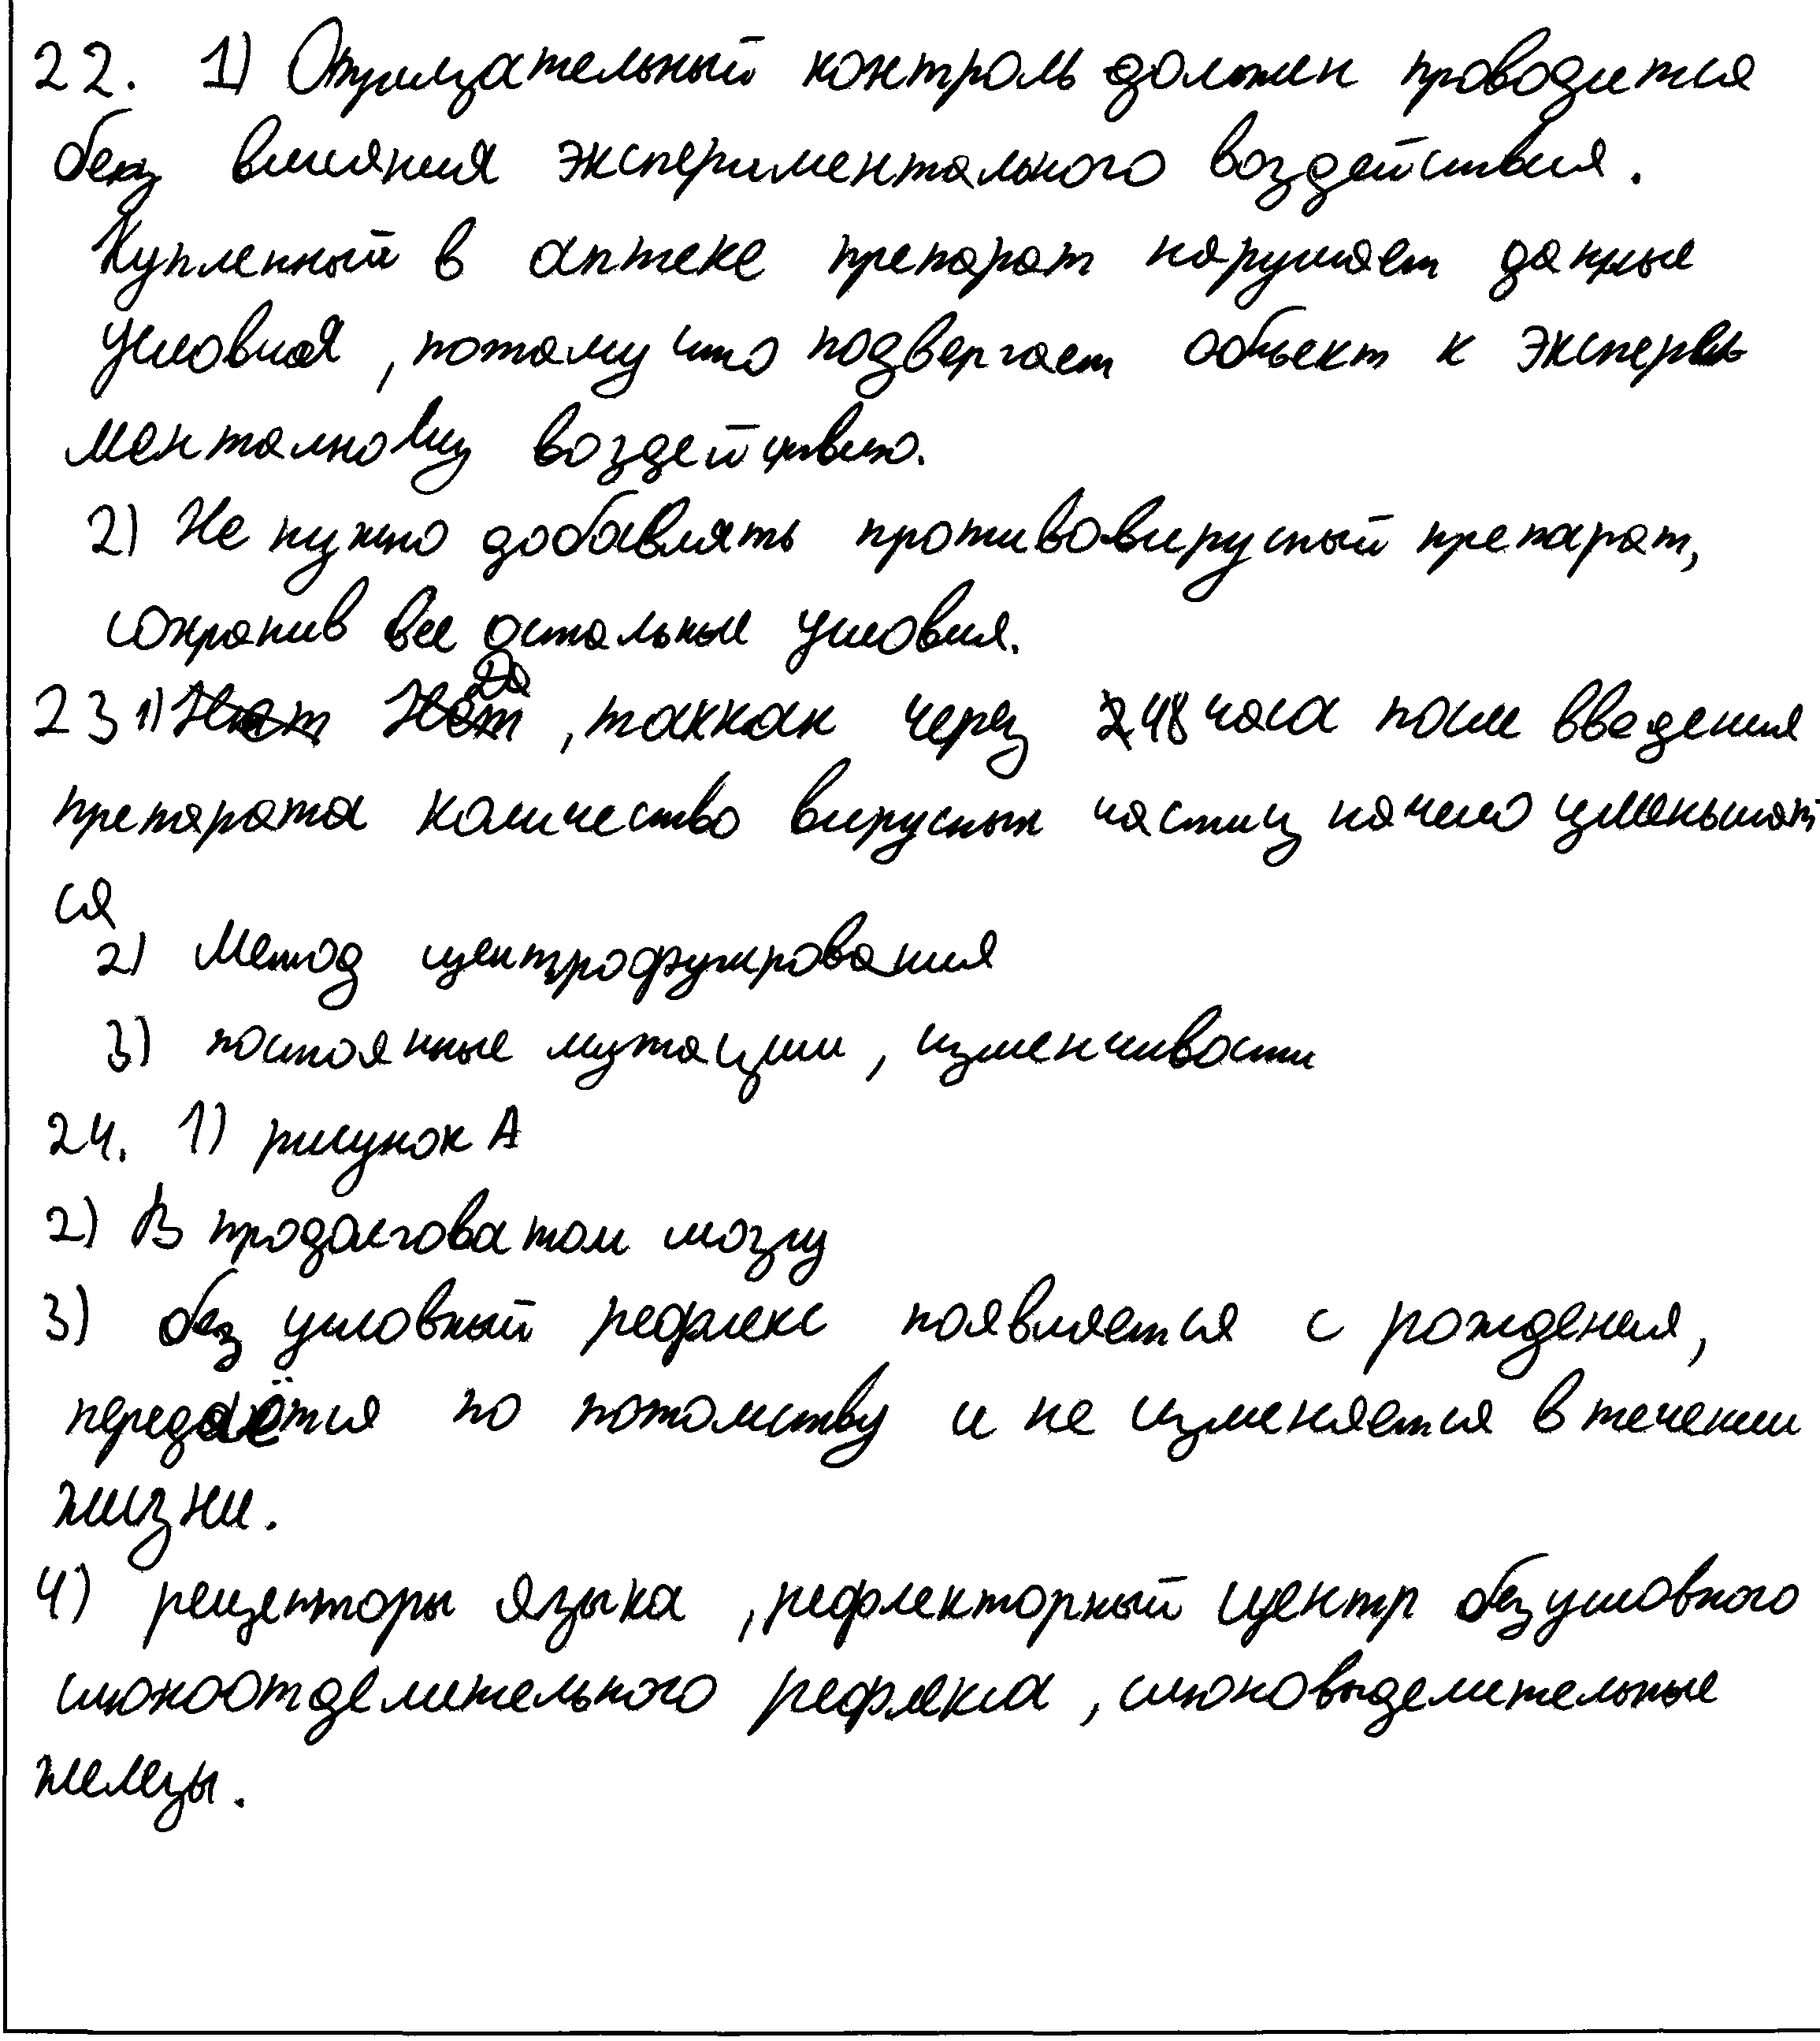 22. 1) Отрицательный контроль должен проводится
без влияния экспериментального воздействия.
Купленный в аптеке препарат нарушает данные
условия, потому что подвергает объект к экспери
менталному воздействию.
2) Не нужно добавлять противовирусный препарат,
сохранив все остальные условия.
23 1) Нет Нет Да, так как через 48 часа после введения
препарата количество вирусных частиц начело уменьшат
ся
2) Метод центрофугирования
3) постоянные мутации, изменчивости
24. 1) рисунок А
2) В продолговатом мозгу
3) безусловный рефлекс появляется с рождения,
передаётся по потомству и не изменяется в течении
жизни.
4) рецепторы языка, рефлекторный центр безусловного
слюноотделительного рефлекса, слюновыделительные
железы.